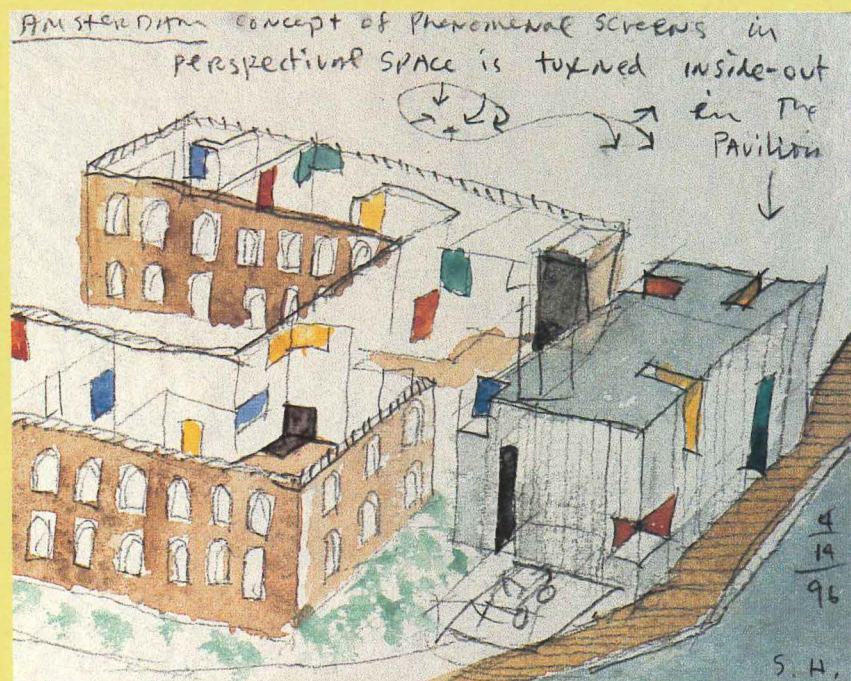 AMSTERDAM concept of PHENOMENAL SCREENS in
PERSPECTIVAL SPACE is TURNED INSIDE-OUT
in The
PAVILION
4
19
96
S. H.